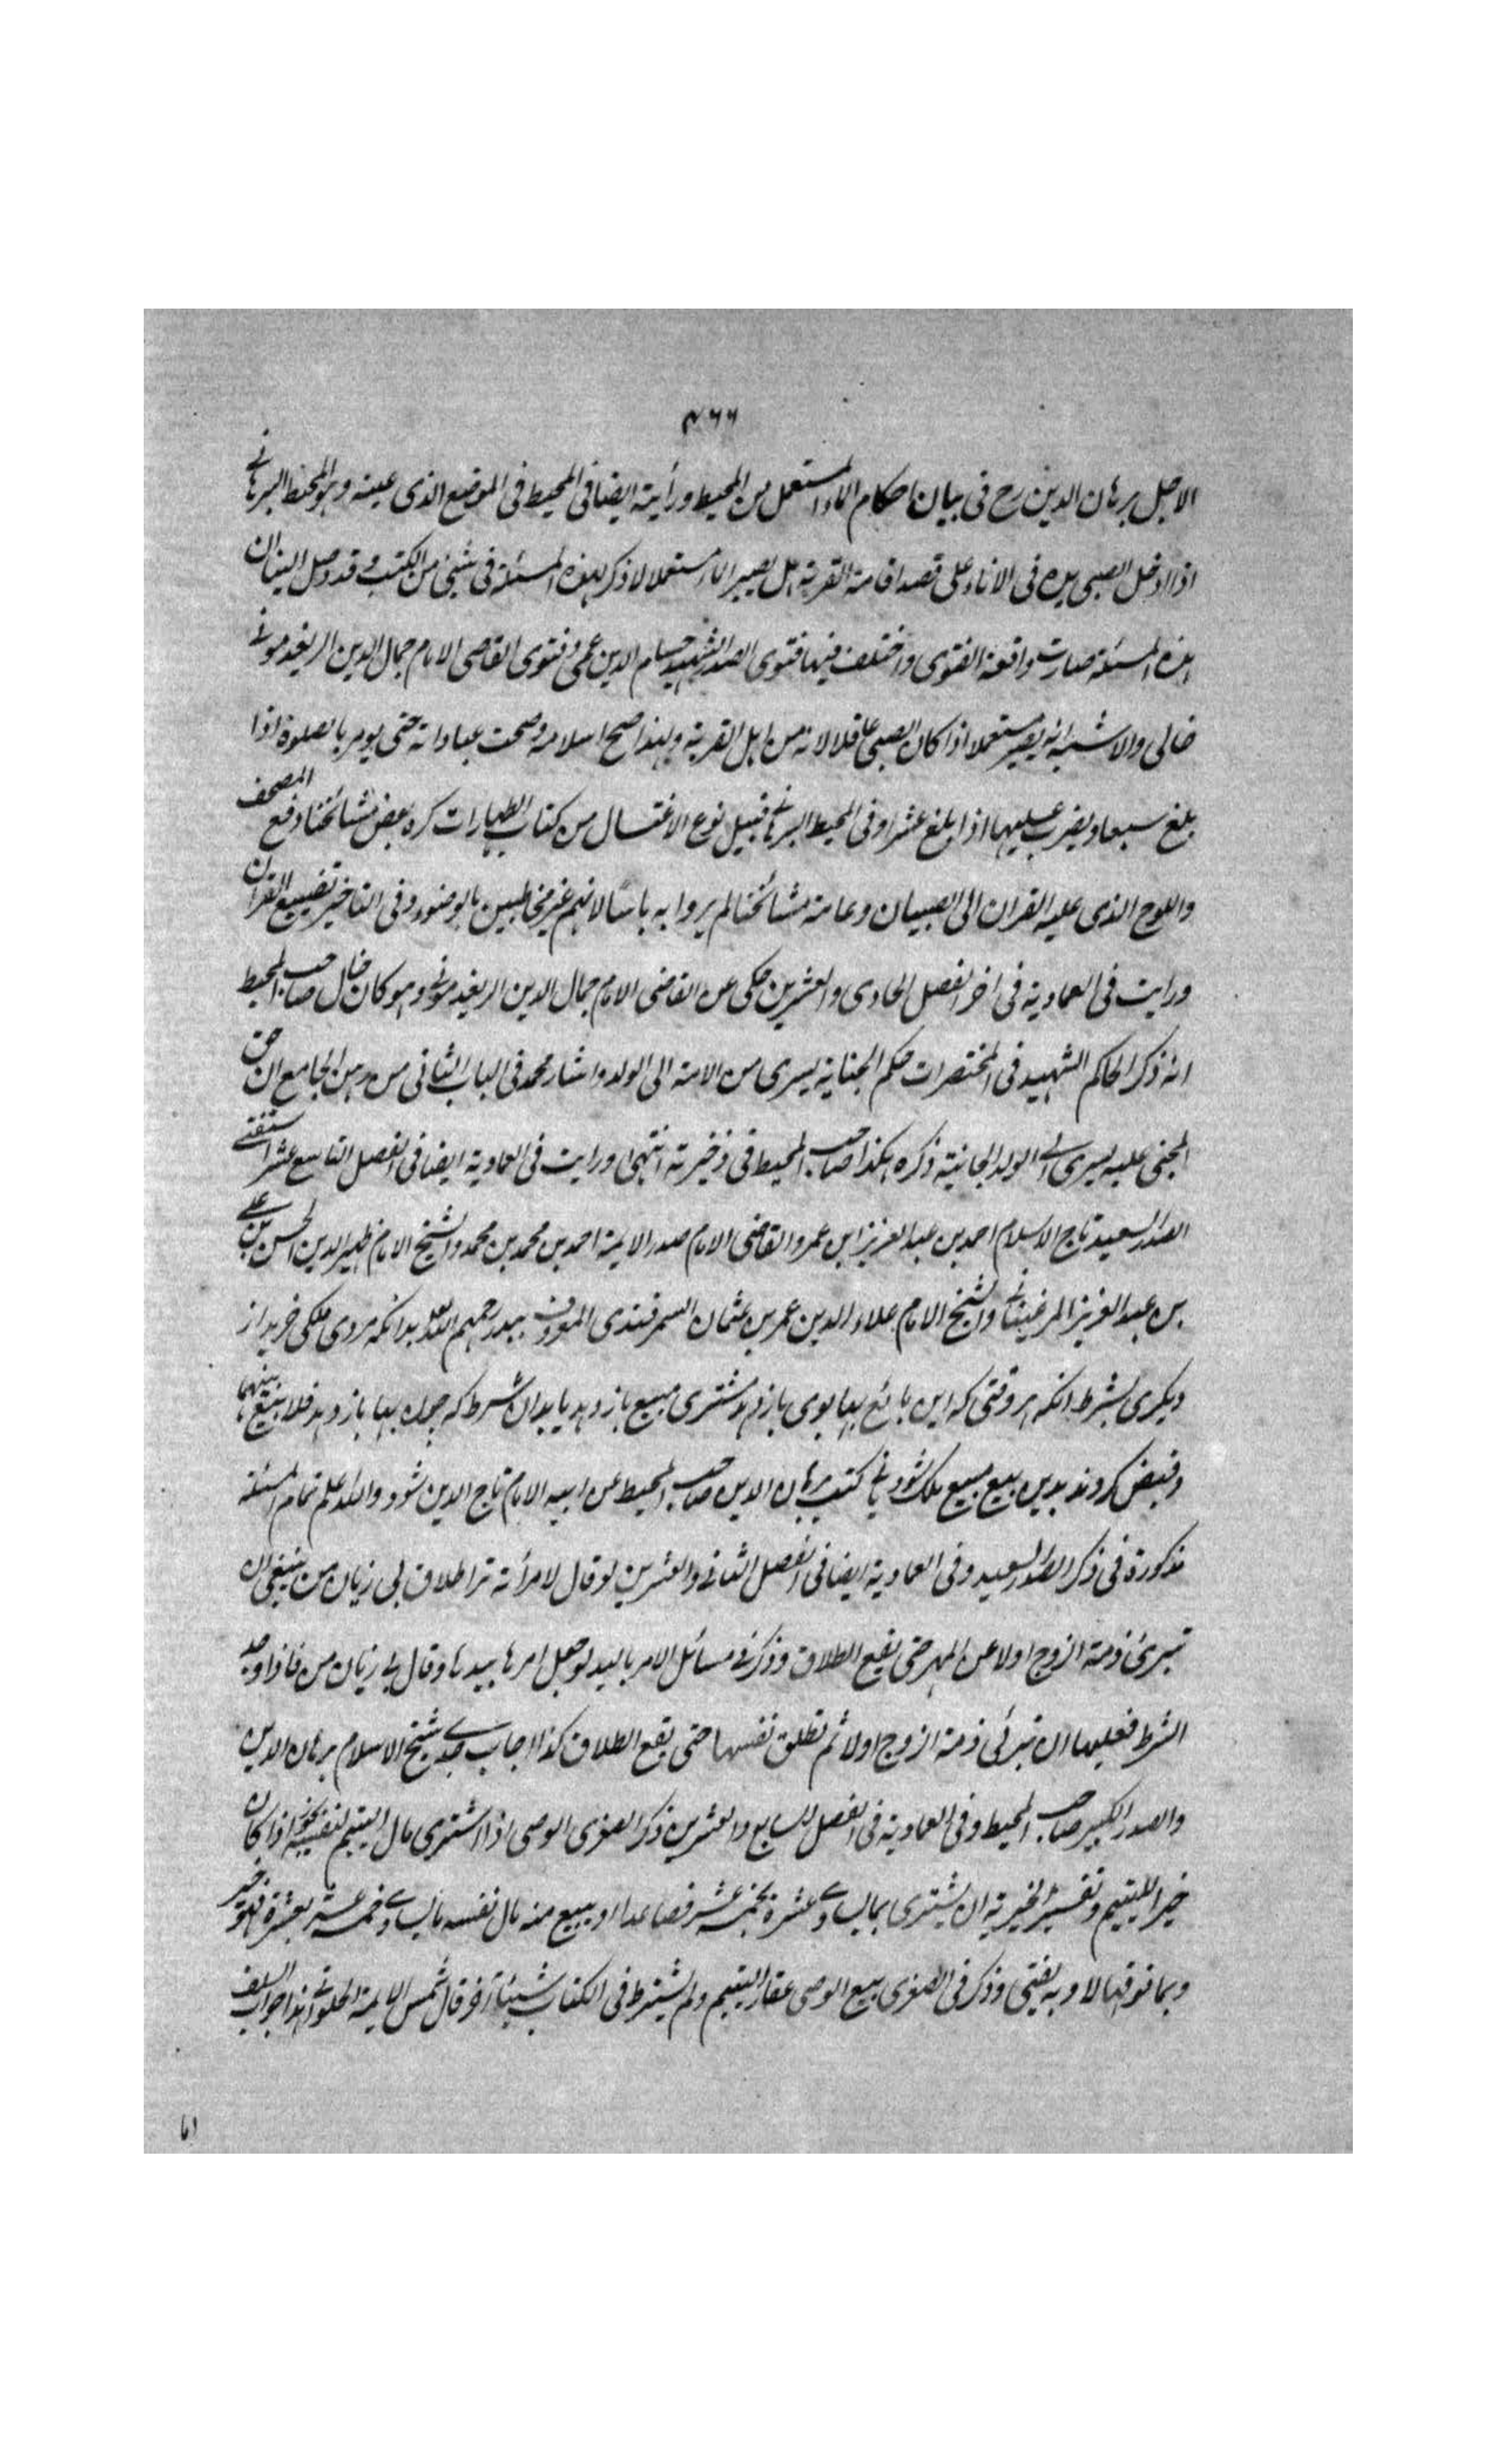 ٤٦٦
الاجل برهان الدين رح فى بيان احكام الماء المستعمل من المحيط ورأيته ايضا فى المحيط فى الموضع الذى عينه وهو المحيط البرهانى
اذا ادخل الصبى يده فى الاناء على قصد اقامة القربة هل يصير الماء مستعملا لا ذكر لهذه المسئلة فى شئ من الكتب وقد وصل الينا ان
هذه المسئلة صارت واقعة الفتوى واختلف فيها فتوى الصدر الشهيد حسام الدين عمى وفتوى القاضى الامام جمال الدين الريغدمونى
خالى والاشبه انه يصير مستعملا اذا كان الصبى عاقلا لانه من اهل القربة ولهذا صح اسلامه وصحت عباداته حتى يومر بالصلوة اذا
بلغ سبعا ويضرب عليها اذا بلغ عشرا وفى المحيط البرهانى قبيل نوع الاغتسال من كتاب الطهارات كره بعض مشائخنا دفع المصحف
واللوح الذى عليه القران الى الصبيان وعامة مشائخنا لم يروا به باسا لانهم غير مخاطبين بالوضوء وفى التاخير تضييع القران
ورايت فى العمادية فى اخر الفصل الحادى والعشرين حكى عن القاضى الامام جمال الدين الريغدمونى وهو كان خال صاحب المحيط
انه ذكر الحاكم الشهيد فى المختصرات حكم الجناية يسرى من الامة الى الولد واشار محمد فى الباب الثانى من رهن الجامع ان حق
المجنى عليه يسرى الى الولد الجانية ذكره هكذا صاحب المحيط فى ذخيرته انتهى ورايت فى العمادية ايضا فى الفصل التاسع عشر استفتى
الصدر السعيد تاج الاسلام احمد بن عبد العزيز ابن عمر والقاضى الامام صدر الايمة احمد بن محمد بن محمد والشيخ الامام ظهير الدين الحسن بن على
بن عبد العزيز المرغينانى والشيخ الامام علاء الدين عمر بن عثمان السمرقندى المعروف ببدر رحمهم الله بدانكه مردى ملكى خريد از
ديكرى بشرط انكه هر وقتى كه اين بائع بها بوى باز دهد مشترى مبيع باز دهد يا بدان شرط كه چون بها باز دهد فلا بيع بينهما
وقبض كردند بدين بيع مبيع ملك شود يانى كتب برهان الدين صاحب المحيط عن ابيه الامام تاج الدين شود والله اعلم تمام المسئلة
مذكورة فى ذكر الصدر السعيد وفى العمادية ايضا فى الفصل الثانى والعشرين لو قال لامرأته ترا طلاق بى زيان من ينبغى ان
تبرئ ذمة الزوج اولا عن المهر حتى يقع الطلاق وذكر فى مسائل الامر باليد لو جعل امرها بيدها وقال بى زيان من فاذا وجد
الشرط فعليها ان تبرئى ذمة الزوج اولا ثم تطلق نفسها حتى يقع الطلاق كذا اجاب جدى شيخ الاسلام برهان الدين
والصدر الكبير صاحب المحيط وفى العمادية فى الفصل السابع والعشرين ذكر الصغرى الوصى اذا اشترى مال اليتيم لنفسه يجوز اذا كان
خيرا لليتيم وتفسير الخيرية ان يشترى بما يساوى عشرة بخمسة عشر فصاعدا او يبيع منه مال نفسه ما يساوى خمسة عشر بعشرة فهو خير
وبما فوقها لا وبه يفتى وذكر فى الصغرى بيع الوصى عقار اليتيم ولم يشترط فى الكتاب شيئا آخر قال شمس الايمة الحلوانى هذا جواب السلف
اما